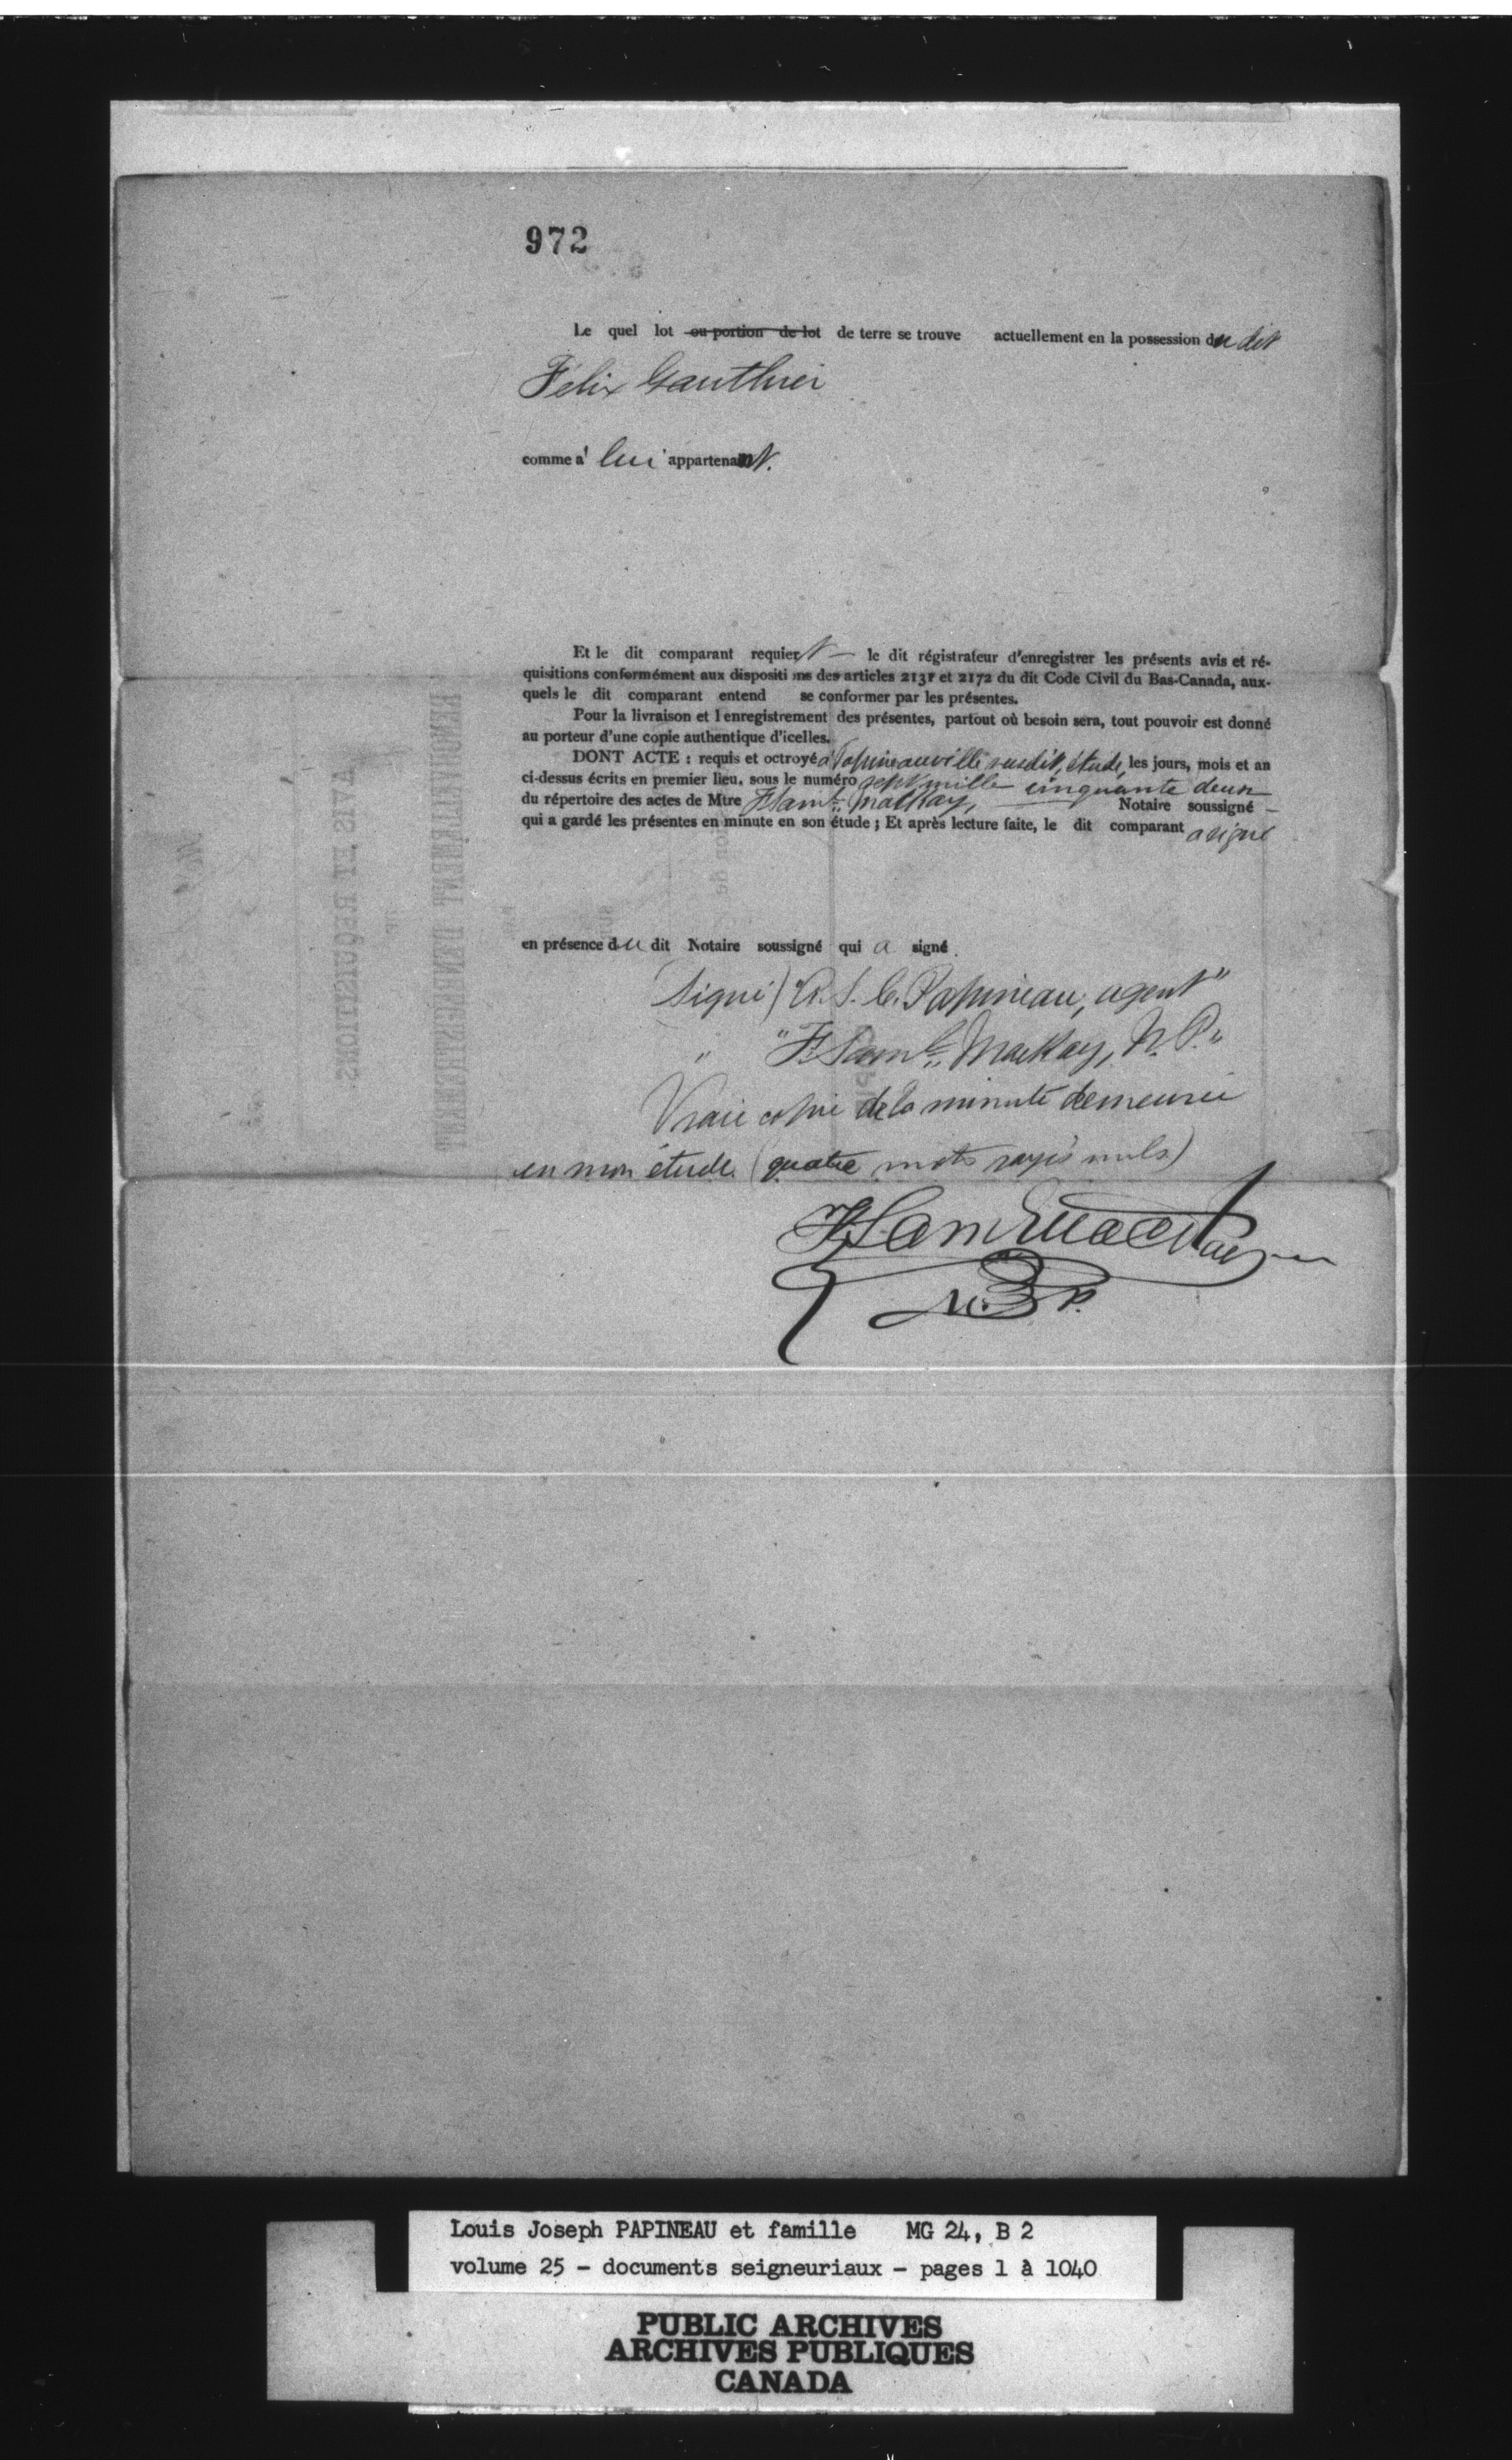 972
Le quel lot ou portion de lot de terre se trouve actuellement en la possession du dit
Félix Gauthier
comme à lui appartenant.
Et le dit comparant requiert le dit régistrateur d'enregistrer les présents avis et ré-
quisitions conformément aux dispositions des articles 2131 et 2172 du dit Code Civil du Bas-Canada, aux-
quels le dit comparant entend se conformer par les présentes.
Pour la livraison et l'enregistrement des présentes, partout où besoin sera, tout pouvoir est donné
au porteur d'une copie authentique d'icelles.
DONT ACTE : requis et octroyé à Papineauville susdit, étude, les jours, mois et an
ci-dessus écrits en premier lieu, sous le numéro sept mille cinquante deux
du répertoire des actes de Mtre F. Saml. Mackay, Notaire soussigné
qui a gardé les présentes en minute en son étude ; Et après lecture faite, le dit comparant a signé
en présence du dit Notaire soussigné qui a signé.
Signé) C. Papineau, agent"
" "F. Saml. Mackay, N. P."
Vraie copie de la minute demeurée
en mon étude. (quatre mots rayés nuls)
F Saml Mackay
N. P.
AVIS ET REQUISITIONS
RENOUVELLEMENT D'ENREGISTREMENT
Louis Joseph PAPINEAU et famille MG 24, B 2
volume 25 – documents seigneuriaux – pages 1 à 1040
PUBLIC ARCHIVES
ARCHIVES PUBLIQUES
CANADA